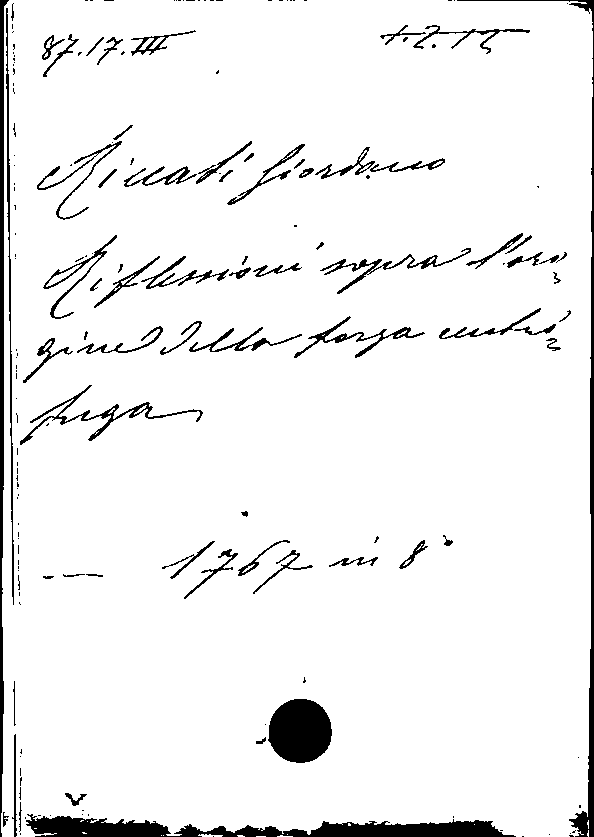 87.17.III
1.2.12
Riccati Giordano
Riflessioni sopra l'ori-
gine della forza centri-
fuga
— 1767 in 8°